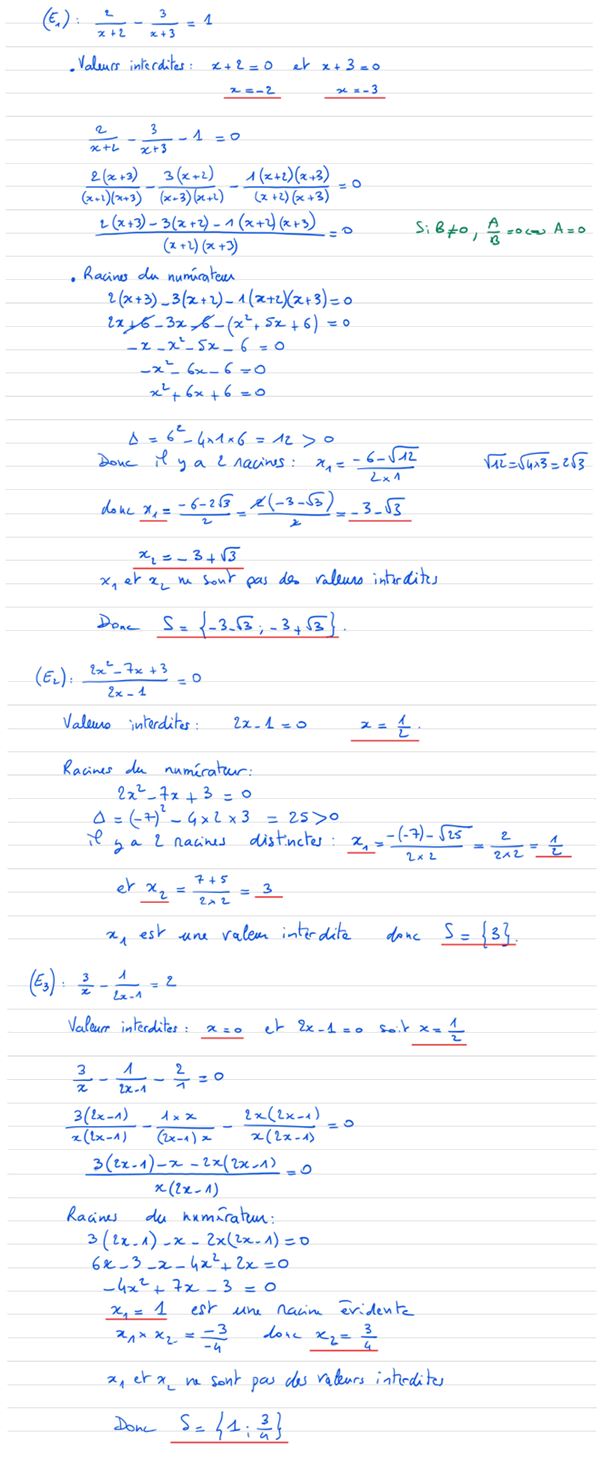 (E₁) : 2/(x+2) - 3/(x+3) = 1
. Valeurs interdites : x+2=0 et x+3=0
x=-2 x=-3
2/(x+2) - 3/(x+3) - 1 = 0
2(x+3)/((x+2)(x+3)) - 3(x+2)/((x+3)(x+2)) - 1(x+2)(x+3)/((x+2)(x+3)) = 0
(2(x+3)-3(x+2)-1(x+2)(x+3))/((x+2)(x+3)) = 0 Si B≠0, A/B =0 ⟺ A=0
. Racines du numérateur
2(x+3)-3(x+2)-1(x+2)(x+3)=0
2x+6-3x-6-(x²+5x+6)=0
-x-x²-5x-6=0
-x²-6x-6=0
x²+6x+6=0
Δ = 6²-4×1×6 = 12 > 0
Donc il y a 2 racines : x₁ = (-6-√12)/(2×1) √12=√4×3=2√3
donc x₁ = (-6-2√3)/2 = 2(-3-√3)/2 = -3-√3
x₂ = -3+√3
x₁ et x₂ ne sont pas des valeurs interdites
Donc S = {-3-√3 ; -3+√3}.
(E₂) : (2x²-7x+3)/(2x-1) = 0
Valeurs interdites : 2x-1=0 x = 1/2.
Racines du numérateur :
2x²-7x+3=0
Δ = (-7)²-4×2×3 = 25>0
il y a 2 racines distinctes : x₁ = (-(-7)-√25)/(2×2) = 2/(2×2) = 1/2
et x₂ = (7+5)/(2×2) = 3
x₁ est une valeur interdite donc S = {3}.
(E₃) : 3/x - 1/(2x-1) = 2
Valeurs interdites : x=0 et 2x-1=0 soit x=1/2
3/x - 1/(2x-1) - 2/1 = 0
3(2x-1)/(x(2x-1)) - 1×x/((2x-1)x) - 2x(2x-1)/(x(2x-1)) = 0
(3(2x-1)-x-2x(2x-1))/(x(2x-1)) = 0
Racines du numérateur :
3(2x-1)-x-2x(2x-1)=0
6x-3-x-4x²+2x=0
-4x²+7x-3=0
x₁=1 est une racine évidente
x₁×x₂ = -3/-4 donc x₂ = 3/4
x₁ et x₂ ne sont pas des valeurs interdites
Donc S = {1 ; 3/4}